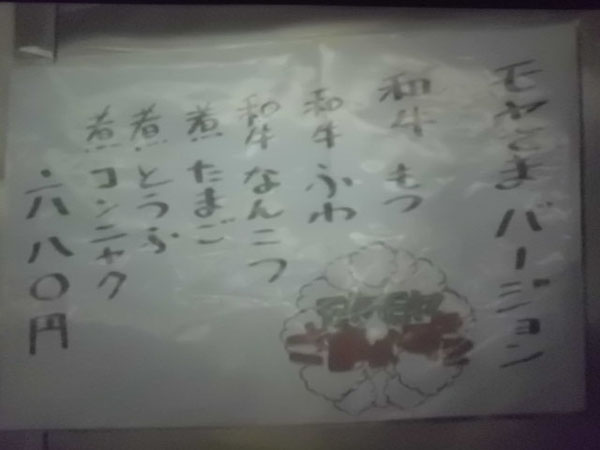 モヤさまバージョン
和牛もつ
和牛ふわ
和牛なんこつ
煮たまご
煮とうふ
煮コンニャク
八八〇円